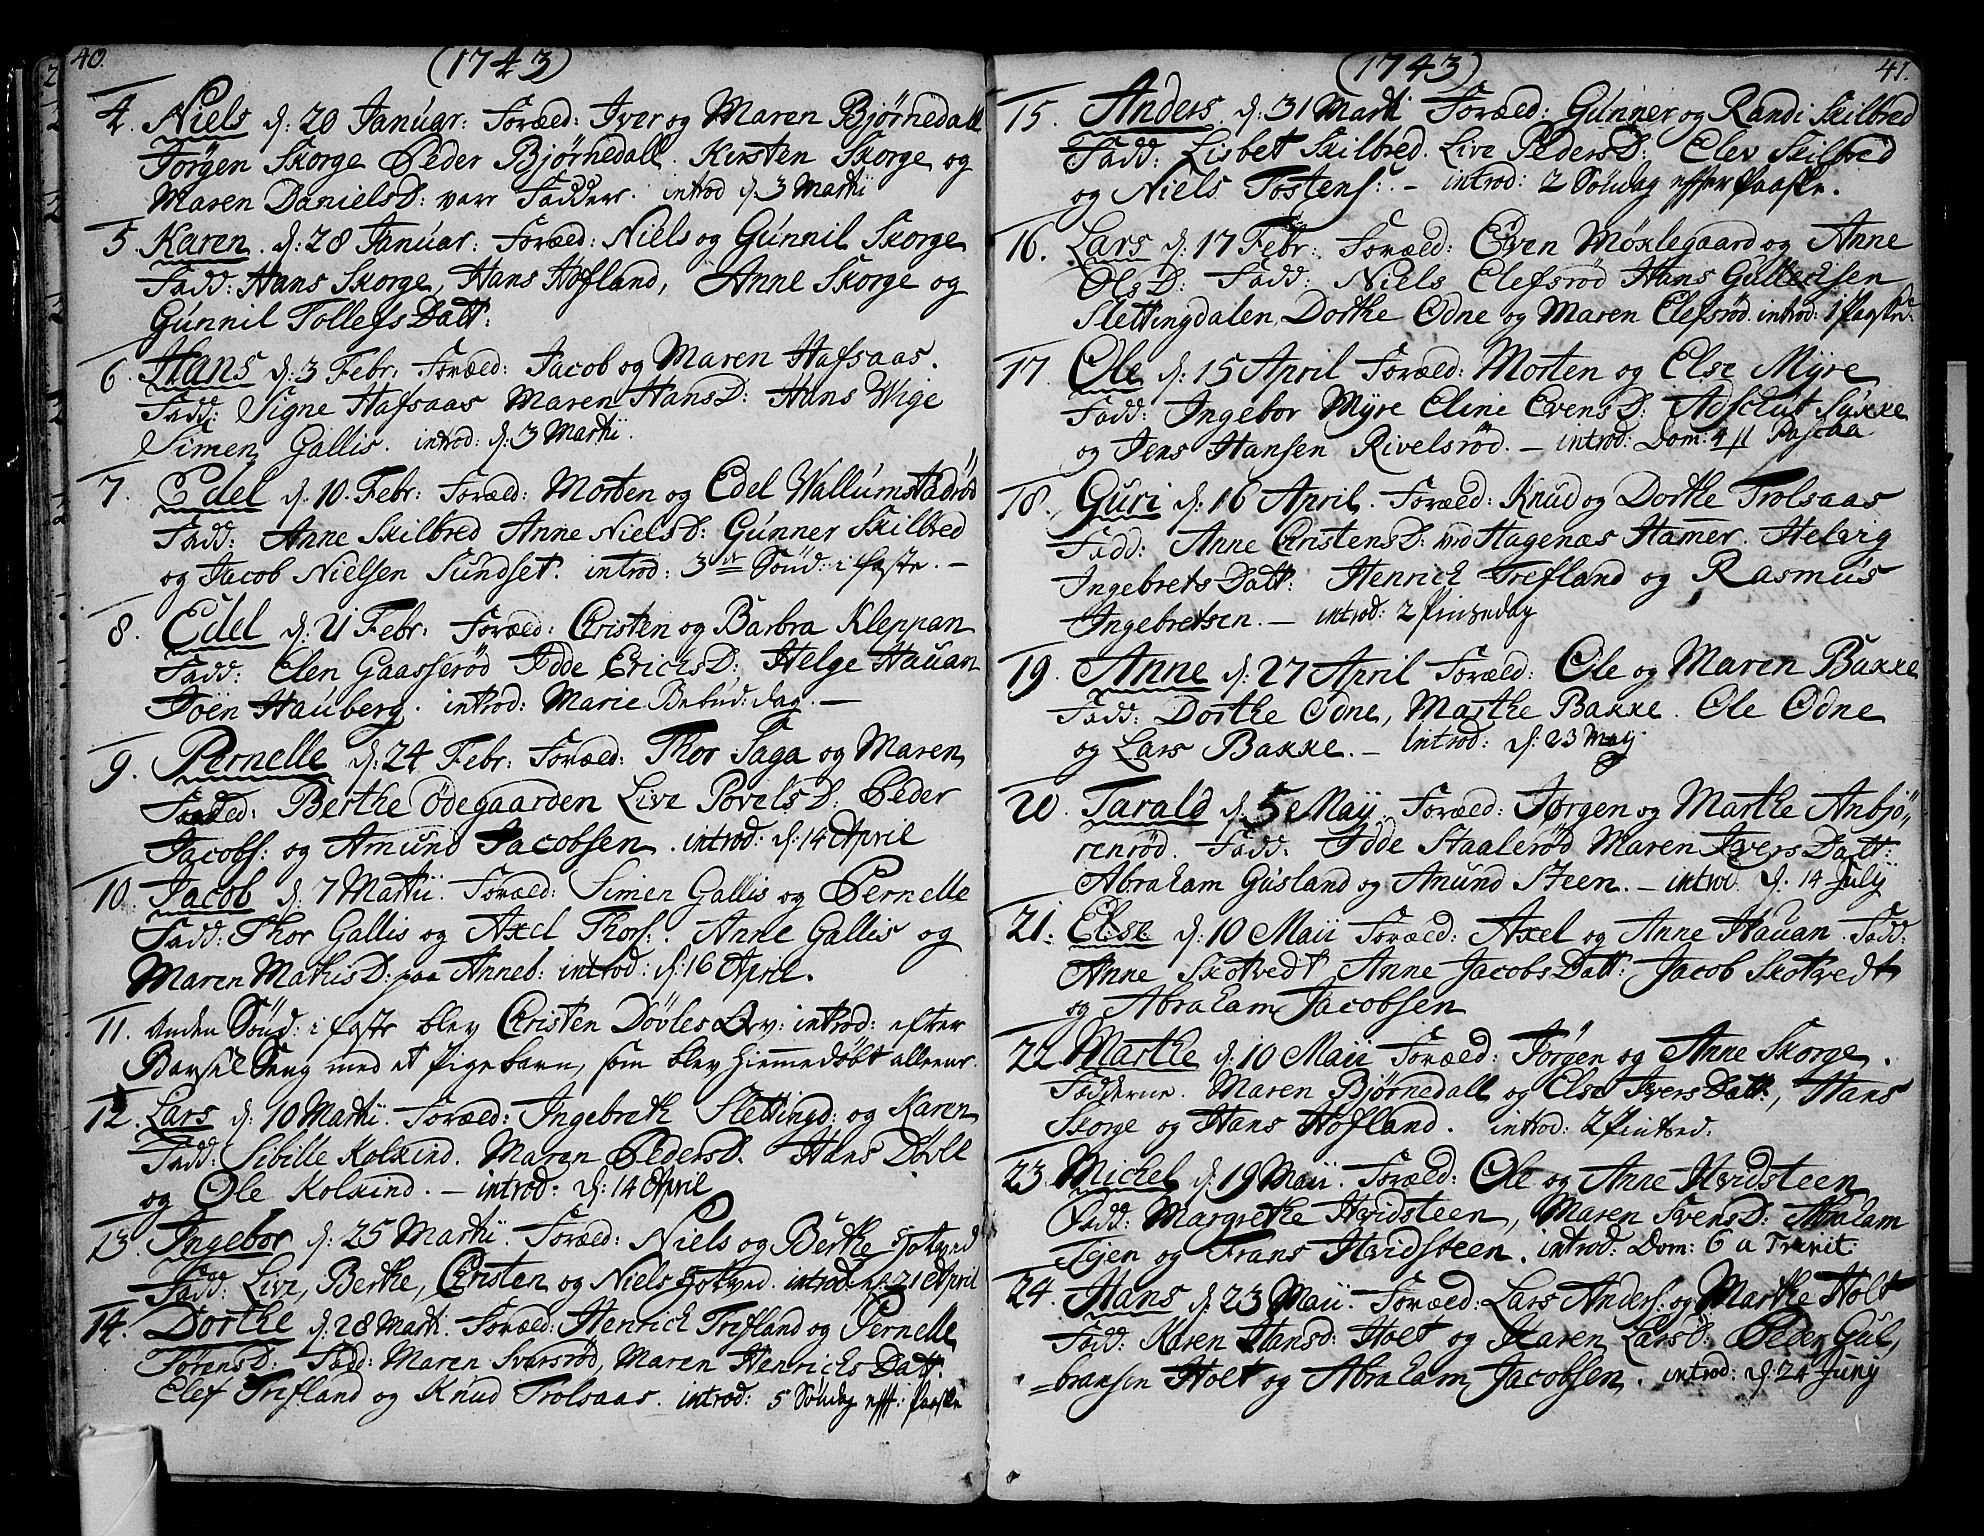 40.
(1743)
4. Niels d: 20 Januar: Foræld: Iver og Maren Bjørnedall
Jørgen Skorge Peder Bjørnedall. Kirsten Skorge og
Maren DanielsD: vare Faddere. introd d: 3 Martii
5. Karen. d: 28 Januar: Foræld: Niels og Gunnil Skorge
Fadd: Hans Skorge, Hans Høfland, Anne Skorge og
Gunnil TollefsDatt:
6. Hans d: 3 Febr: Foræld: Jacob og Maren Hafsaas.
Fadd: Signe Hafsaas Maren HansD: Hans Wige
Simen Gallis. introd: d: 3 Martii.
7. Edel d: 10. Febr: Foræld: Morten og Edel Wallumstadrød
Fadd: Anne Skilbred Anne NielsD: Gunner Skilbred
og Jacob Nielsen Sundset. introd: 3de Sønd: i faste. —
8. Edel d: 21 Febr: Foræld: Christen og Barbra Kleppan
Fadd: Elen Gaasserød Idde ErichsD: Helge Hauan
Joen Hauberg. introd: Marie Bebud: dag. —
9. Pernelle d: 24 Febr: Foræld: Thor Saga og Maren
Fadd: Berthe Ødegaarden Live PovelsD: Peder
Jacobs: og Amund Jacobsen. introd: d: 14 April
10. Jacob d: 7 Martii. Foræld: Simen Gallis og Pernelle
Fadd: Thor Gallis og Axel Thors:. Anne Gallis og
Maren MathisD: paa Anneb: introd: d: 16 April.
11. Anden Sønd: i faste blev Christen Døvles introd: efter
Barsel Seng med et Pigebarn, som blev hiemmedøbt alleene.
12. Lars d: 10 Martii. Foræld: Ingebreth Slettingd: og Karen
Fadd: Sibille Kolkind. Maren PedersD. Hans Døvle
og Ole Kolkind. — introd: d: 14 April
13. Ingebor d: 25 Martii. Foræld: Niels og Berthe Gotved
Fadd: Live, Berthe, Christen og Niels Gotved. introd: d: 21 April
14. Dorthe d: 28 Marti. Foræld: Henrich Trefland og Pernelle
SørensD: Fadd: Maren Svarsrød, Maren HenrichsDatt:
Elef Trefland og Knud Trolsaas. introd: 5 Søndag eft: Paaske
41.
(1743)
15. Anders. d: 31 Marti Foræld: Gunner og Randi Skilbred
Fadd: Lisbet Skilbred. Live PedersD: Elev Skilbred
og Niels Tostens:. — introd: 2 Søndag effter Paaske.
16. Lars d: 17 Febr: Foræld: Even Møxlegaard og Anne
OlsD: Fadd: Niels Elefsrød Hans Gullechsen
Slettingdalen, Dorthe Odne og Maren Elefsrød. introd: 1 Paaske:
17. Ole d: 15 April Foræld: Morten og Else Myre
Fadd: Ingebor Myre Eline EvensD: Adschut Sykke
og Jens Hansen Rivelsrød. — introd: Dom: 4 Pascha
18. Guri d: 16 April. Foræld: Knud og Dorthe Trolsaas
Fadd: Anne ChristensD: vid Hagenæs Hamer. Helvig
IngebretsDatt: Henrich Trefland og Rasmus
Ingebretsen. — introd: 2 Pinsedag
19. Anne d: 27 April Foræld: Ole og Maren Bakke
Fadd: Dorthe Odne, Marthe Bakke. Ole Odne
og Lars Bakke. — introd: d: 23 May
20. Tarald d: 5 Maij Foræld: Jørgen og Marthe Anbjø„
renrød. Fadd: Idde Staalerød Maren IversDatt:
Abraham Gusland og Anund Steen. — introd. d: 14 July
21. Else d: 10 Maii Foræld: Axel og Anne Hauan. Fadd:
Anne Skotvedt Anne JacobsDatt: Jacob Skotvedt
og Abraham Jacobsen
22 Marthe d: 10 Maii Foræld: Jørgen og Anne Skorge.
Fadderne. Maren Bjørnedall og Else IversDatt:, Hans
Skorge og Hans Høfland. introd: 2 Pintsed:
23. Michel d: 19 Maii. Foræld: Ole og Anne Hvidsteen
Fadd: Margrethe Hvidsteen, Maren SvensD: Abraham
Tejen og Frans Hvidsteen. introd: Dom: 6 a Trinit:
24. Hans d: 23 Maii. Foræld: Lars Anders: og Marthe Holt
Fadd: Karen Hansd: Holt og Karen LarsD: Peder Gul,
=bransen Holt og Abraham Jacobsen. introd: d: 24 Juny